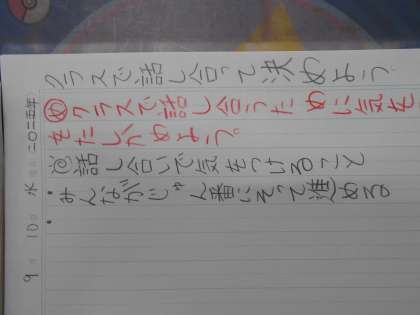 二〇二五年 9月10日 水曜日
クラスで話し合って決めよう
㋱クラスで話し合うために気を
をたしかめよう。
◎話し合いで気をつけること
・みんながじゅん番にそって進める
・